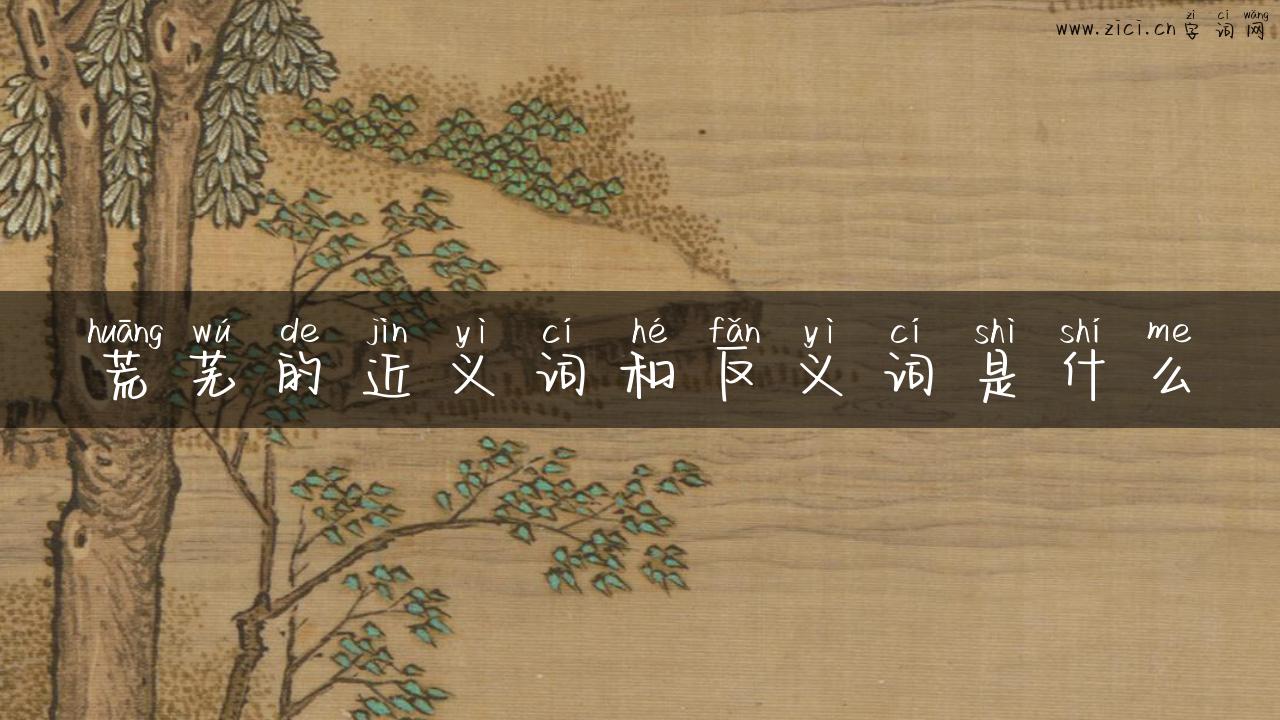 zì cí wǎng
www.zici.cn 字词网
huāng wú de jìn yì cí hé fǎn yì cí shì shí me
荒芜的近义词和反义词是什么